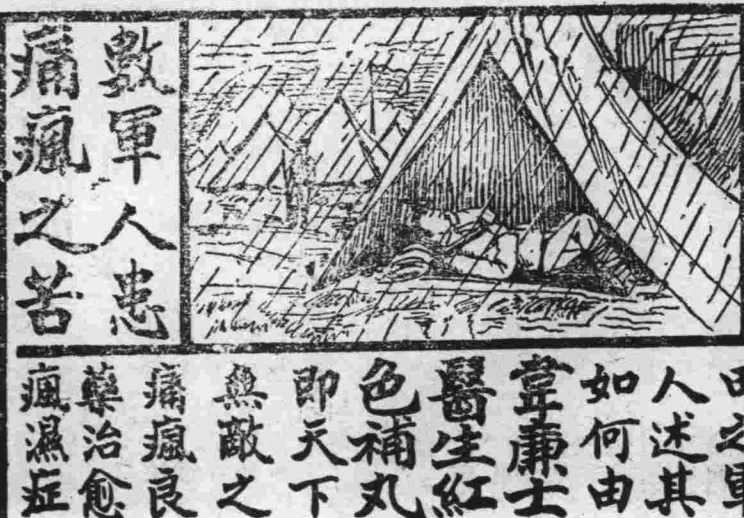 數軍人患
痛瘋之苦
之軍
人述其
如何由
韋廉士
醫生紅
色補丸
即天下
無敵之
痛瘋良
藥治愈
瘋濕症